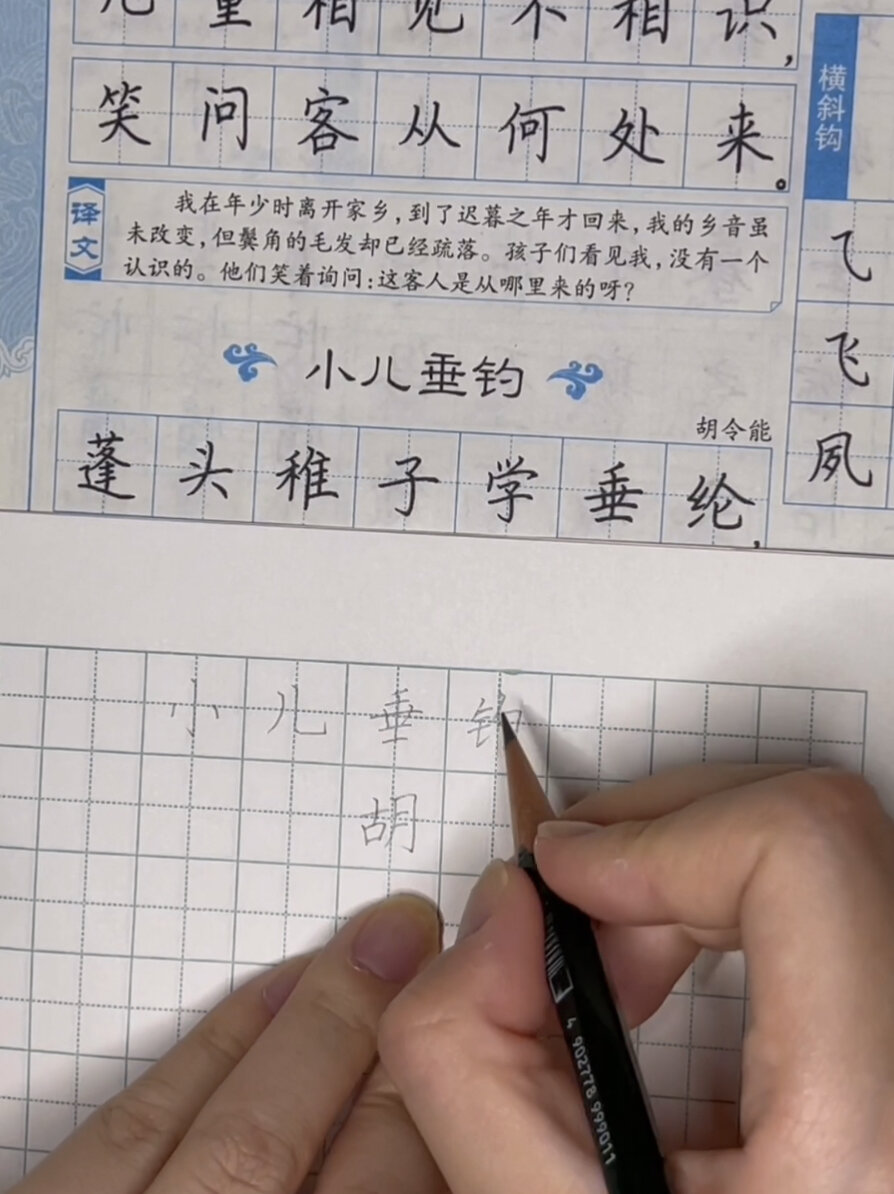 儿童相见不相识，
笑问客从何处来。
译文
我在年少时离开家乡，到了迟暮之年才回来，我的乡音虽
未改变，但鬓角的毛发却已经疏落。孩子们看见我，没有一个
认识的。他们笑着询问：这客人是从哪里来的呀？
小儿垂钓
胡令能
蓬头稚子学垂纶，
横斜钩
⺄
飞
夙
小儿垂钓
胡
4 902778 999011